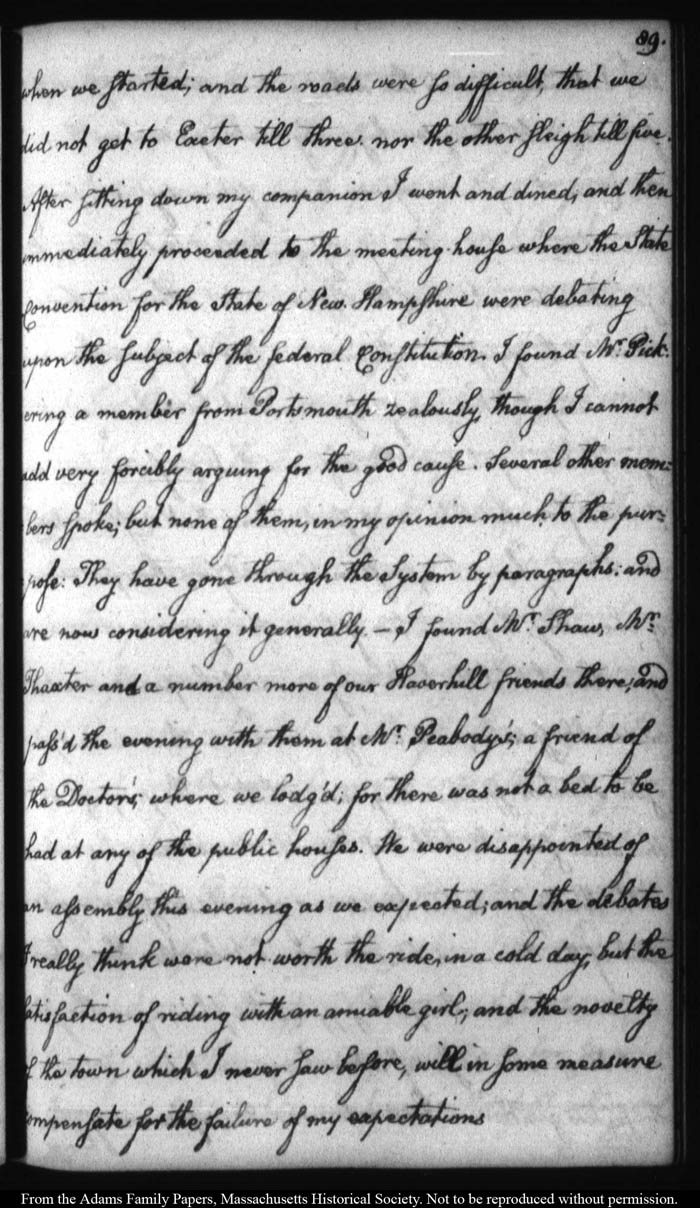 89.
when we started; and the roads were so difficult, that we
did not get to Exeter till three. nor the other sleigh till five.
After sitting down my companion I went and dined, and then
immediately proceeded to the meeting-house where the State
Convention for the State of New. Hampshire were debating
upon the subject of the federal Constitution. I found Mr. Pick-
ering a member from Portsmouth zealously, though I cannot
add very forcibly arguing for the good cause. Several other mem=
bers spoke; but none of them, in my opinion much to the pur=
pose: They have gone through the System by paragraphs: and
are now considering it generally. — I found Mr. Shaw, Mr.
Thaxter and a number more of our Haverhill friends there; and
pass'd the evening with them at Mr. Peabody's; a friend of
the Doctor's; where we lodg'd; for there was not a bed to be
had at any of the public houses. We were disappointed of
an assembly this evening as we expected; and the debates
I really think were not worth the ride, in a cold day, but the
satisfaction of riding with an amiable girl; and the novelty
of the town which I never saw before, will in some measure
compensate for the failure of my expectations
From the Adams Family Papers, Massachusetts Historical Society. Not to be reproduced without permission.